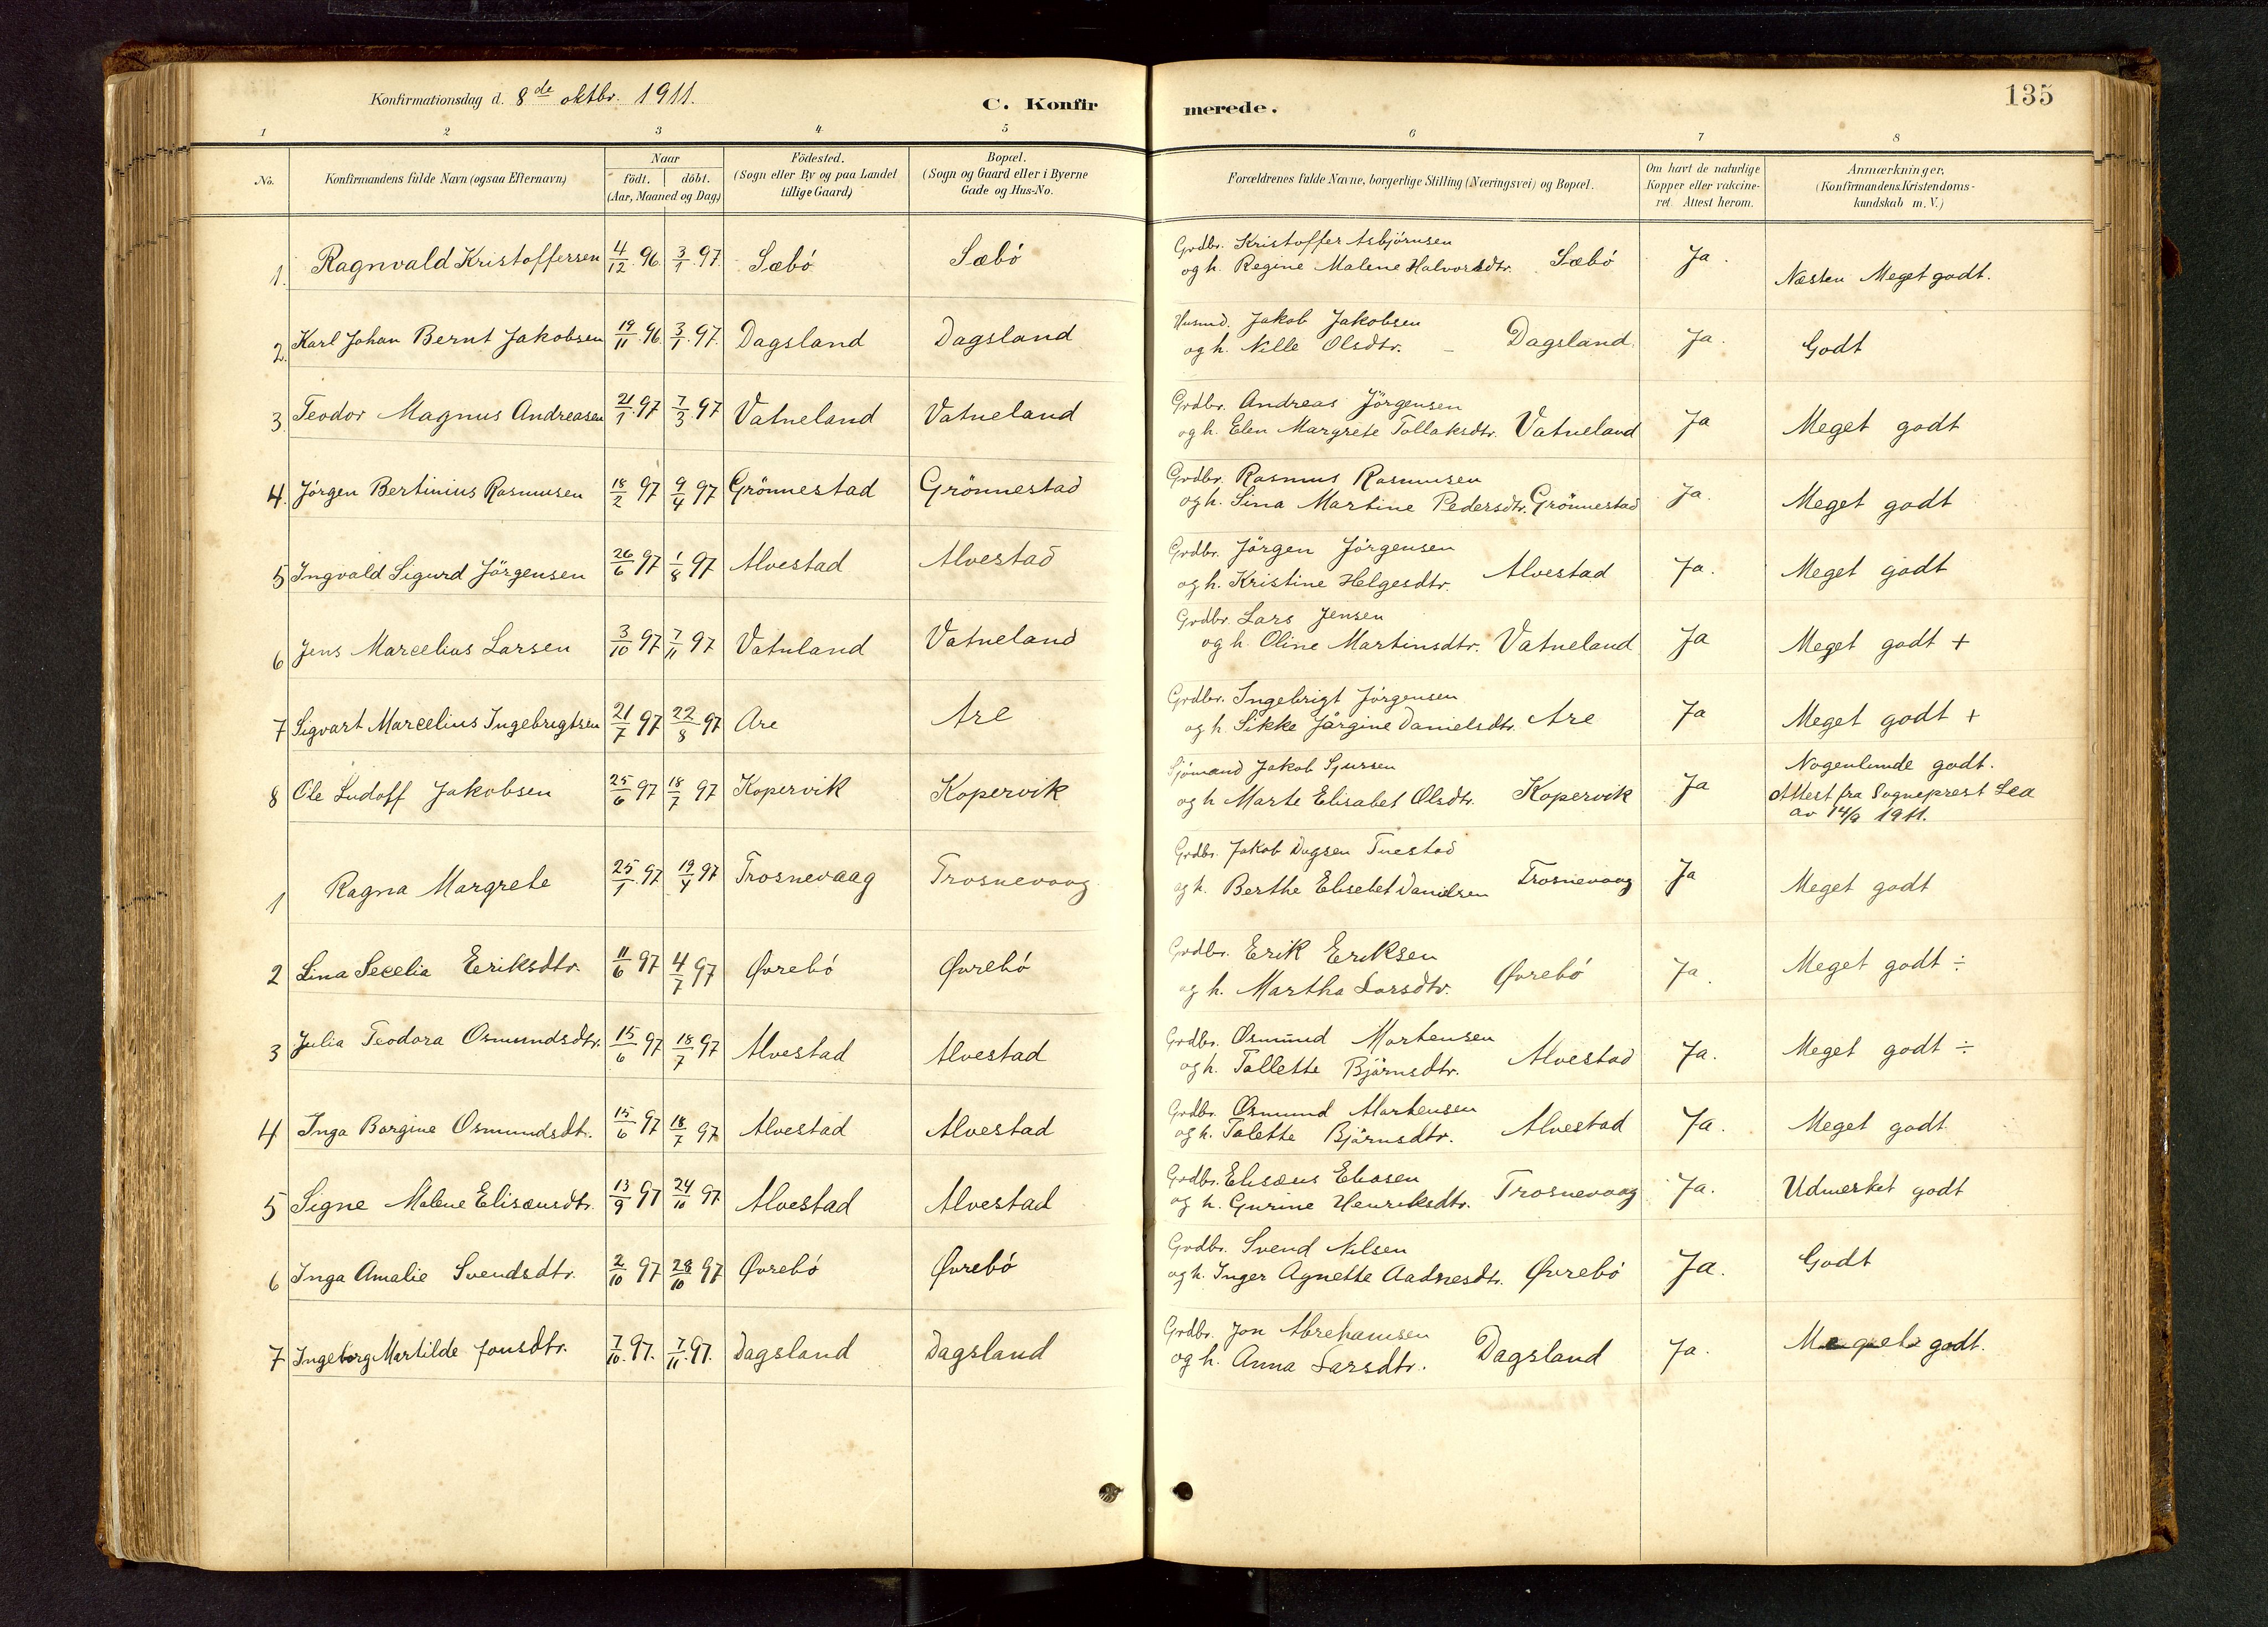 Konfirmationsdag d. 8de oktbr. 1911.
C. Konfirmerede.
135
1 2 3 4 5 6 7 8
No.
Konfirmandens fulde Navn (ogsaa Efternavn)
Naar
födt. döbt.
(Aar, Maaned og Dag)
Födested.
(Sogn eller By og paa Landet
tillige Gaard)
Bopæl.
(Sogn og Gaard eller i Byerne
Gade og Hus-No.
Forældrenes fulde Navne, borgerlige Stilling (Næringsvei) og Bopæl.
Om havt de naturlige
Kopper eller vakcine-
ret. Attest herom.
Anmærkninger.
(Konfirmandens Kristendoms-
kundskab m. V.)
1. Ragnvald Kristoffersen 4/12 96. 3/1 97. Sæbö Sæbö
Grdbr. Kristoffer Asbjörnsen
og h. Regine Malene Halvorsdtr. Sæbö Ja. Næsten Meget godt.
2. Karl Johan Bernt Jakobsen 19/11 96. 3/1 97. Dagsland Dagsland
Husmd. Jakob Jakobsen
og h. Nille Olsdtr. – Dagsland Ja. Godt
3. Teodor Magnus Andreasen 21/1 97 7/3 97 Vatneland Vatneland
Grdbr. Andreas Jörgensen
og h. Elen Margrete Tollaksdtr. Vatneland Ja Meget godt
4. Jörgen Bertinius Rasmusen 18/2 97 9/4 97 Grönnestad Grönnestad
Grdbr. Rasmus Rasmusen
og h. Sina Martine Pedersdtr. Grönnestad Ja. Meget godt
5 Ingvald Sigurd Jörgensen 26/6 97 1/8 97 Alvestad Alvestad
Grdbr. Jörgen Jörgensen
og h. Kristine Helgesdtr. Alvestad Ja. Meget godt
6 Jens Marcelius Larsen 3/10 97 7/11 97 Vatnland Vatneland
Grdbr. Lars Jensen
og h. Oline Martinsdtr. Vatneland Ja Meget godt +
7 Sigvart Marcelius Ingebrigtsen 21/7 97 22/8 97 Are Are
Grdbr. Ingebrigt Jörgensen
og h. Sikke Jörgine Danielsdtr. Are Ja Meget godt +
8 Ole Ludoff Jakobsen 25/6 97 18/7 97 Kopervik Kopervik
Sjömand Jakob Sjursen
og h Marte Elisabet Olsdtr. Kopervik Ja Nogenlunde godt.
Attest fra Sogneprest Lea
av 14/9 1911.
1 Ragna Margrete 25/1 97 19/4 97 Trosnevaag Trosnevaag
Grdbr. Jakob Dagsen Tuestad
og h. Berthe Elisebet Danielsen Trosnevaag Ja Meget godt
2 Lina Secelia Eeriksdtr. 11/6 97 4/7 97 Øvrebö Øvrebö
Grdbr. Erik Eriksen
og h. Martha Larsdtr. Øvrebö Ja. Meget godt ÷
3 Julia Teodora Osmundsdtr. 15/6 97 18/7 97 Alvestad Alvestad
Grdbr. Osmund Mortensen
og h. Tallette Björnsdtr. Alvestad Ja. Meget godt ÷
4 Inga Bargine Osmundsdt. 15/6 97 18/7 97 Alvestad Alvestad
Grdbr. Osmund Mortensen
og h. Talette Björnsdtr. Alvestad Ja. Meget godt
5 Signe Malene Elisæusdtr. 13/9 97 24/10 97 Alvestad Alvestad
Grdbr. Elisæus Eliasen
og h. Gurine Henriksdtr. Trosnevaag Ja. Udmerket godt
6 Inga Amalie Svendsdtr. 2/10 97 28/10 97 Øvrebö Øvrebö
Grdbr. Svend Nilsen
og h. Inger Agnette Aadnesdtr. Øvrebö Ja. Godt
7 Ingeborg Martilde Jonsdtr. 7/10. 97. 7/11. 97. Dagsland Dagsland
Grdbr. Jon Abrehamsen
og h. Anna Larsdtr. Dagsland Ja. Meget godt.